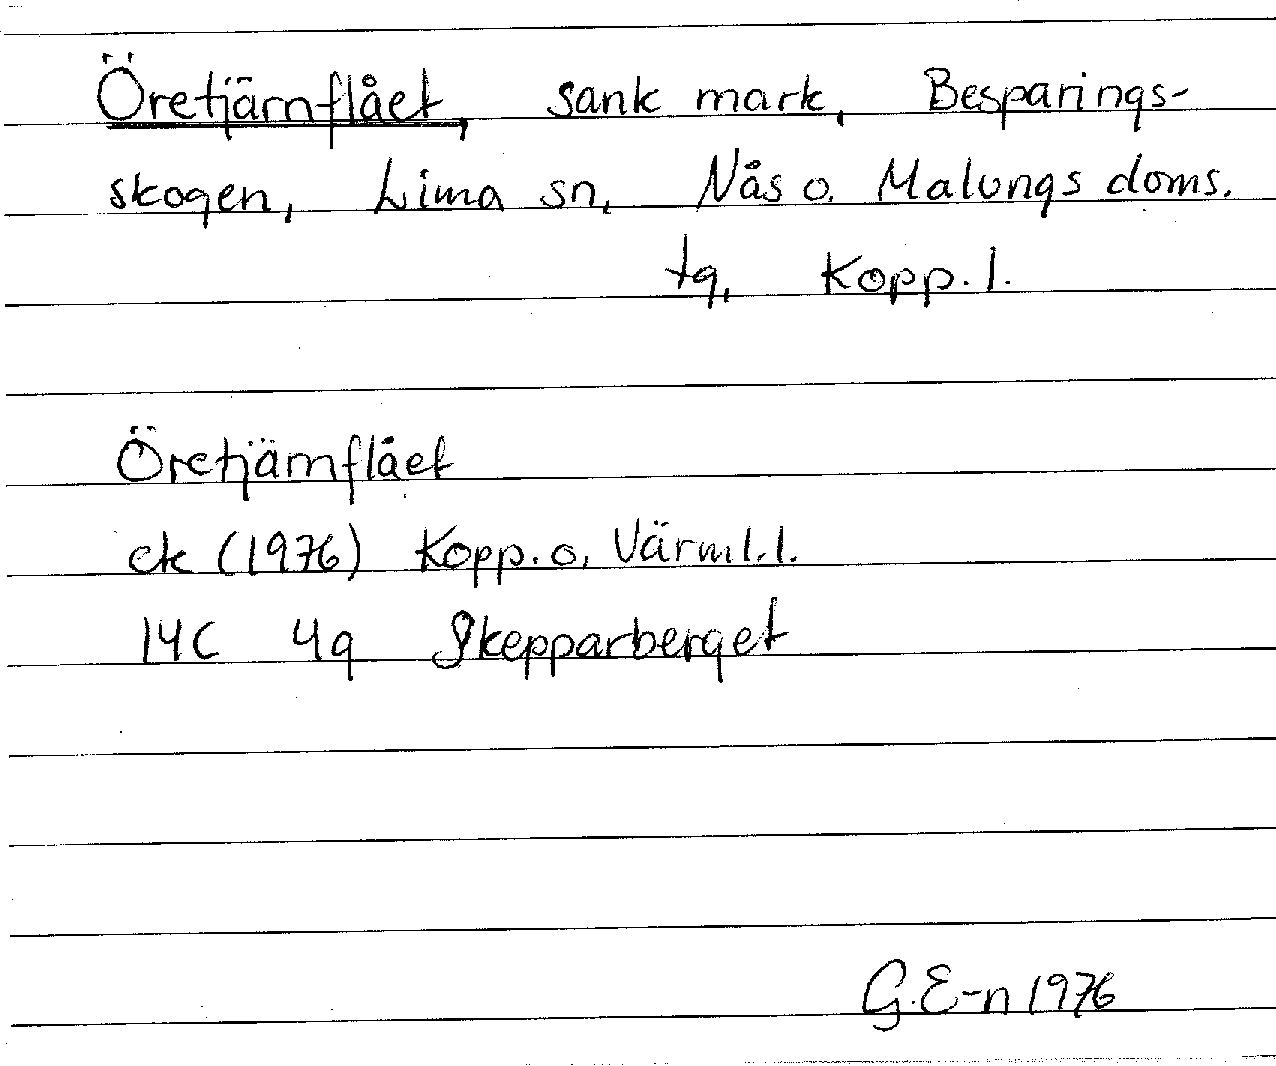 Öretjärnflået, sank mark, Besparings-
skogen, Lima sn, Nås o. Malungs doms.
tg, Kopp. l.
Öretjärnflået
ek (1976) Kopp. o. Värml. l.
14C 4g Skepparberget
G. E-n 1976